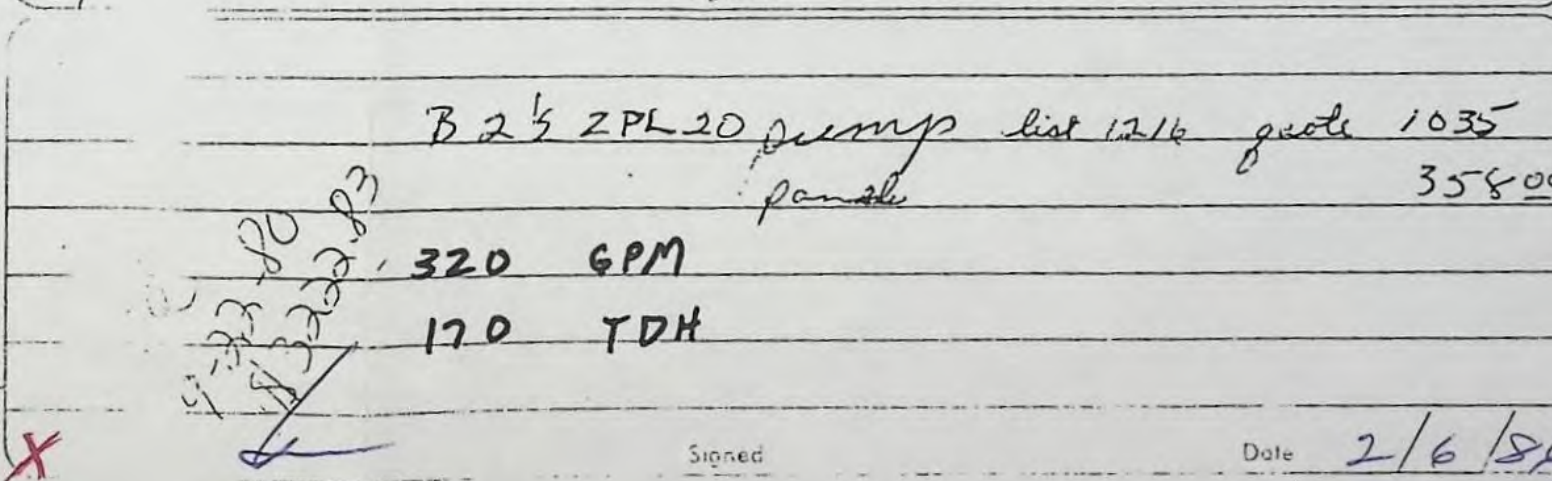 B 2½ ZPL 20 pump list 1216 quote 1035
panel 358 00
320 GPM
170 TDH
X
Signed Date 2/6/8